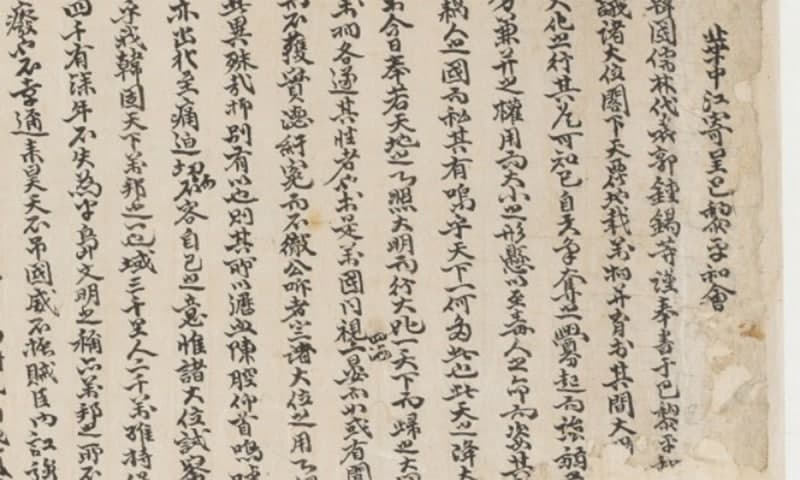 華中江寄呈巴黎平和會
韓國儒林代表郭鍾錫等謹奉書于巴黎平和
議諸大位閣下天覆地載萬物并育於其間大明
大化之行其道可知已自夫爭奪之釁起而強弱
分兼并之權用而大小之形懸以至毒人之命而恣其
竊人之國而私其有嗚乎天下一何多此也此天之降大
於今日奉若天地之心照大明而行大化一天下而歸之大同
萬物各遂其性者於是萬國同視四海一是而如或有聞
而不獲實德緘冤而不徹公聽者豈諸大位之用心
其異殊哉抑別有以也則其所以瀝血陳腔仰首鳴號
亦出於至痛迫切而不容自已之意惟諸大位試察
乎我韓國天下萬邦之一也域三千里人二千萬維持保
四千有餘年不失為半島文明之稱亦萬邦之所不
廢也不幸邇來昊天不吊國威不振賊臣內訌強